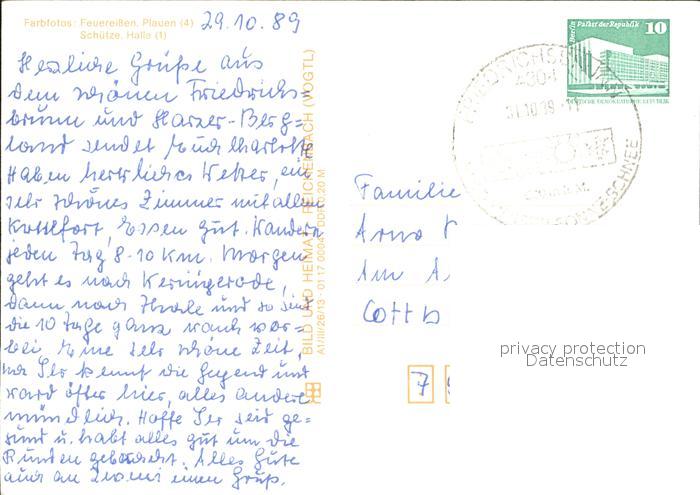 Farbfotos: Feuereißen, Plauen (4)
Schütze, Halle (1)
29.10.89
Herzliche Grüße aus
dem schönen Friedrichs=
brunn und Harzer-Berg=
land sendet Euch Charlotte
Haben herrliches Wetter, ein
sehr schönes Zimmer mit allen
Komfort, Essen gut. Wandern
jeden Tag 8-10 Km. Morgen
geht es nach Wernigerode,
dann nach Thale und so sind
die 10 Tage ganz rasch vor=
bei. Eine sehr schöne Zeit,
na Ihr kennt die Gegend und
ward öfter hier, alles andere
mündlich. Hoffe Ihr seid ge=
sund u. habt alles gut um die
Runden gebracht. Alles Gute
auch an einen Gruß.
BILD UND HEIMAT REICHENBACH (VOGTL)
A1/III/26/13
Familie
Arno
Am A.
Cottb
7
Berlin Palast der Republik
10
DEUTSCHE DEMOKRATISCHE REPUBLIK
4304
31.10.89
privacy protection
Datenschutz